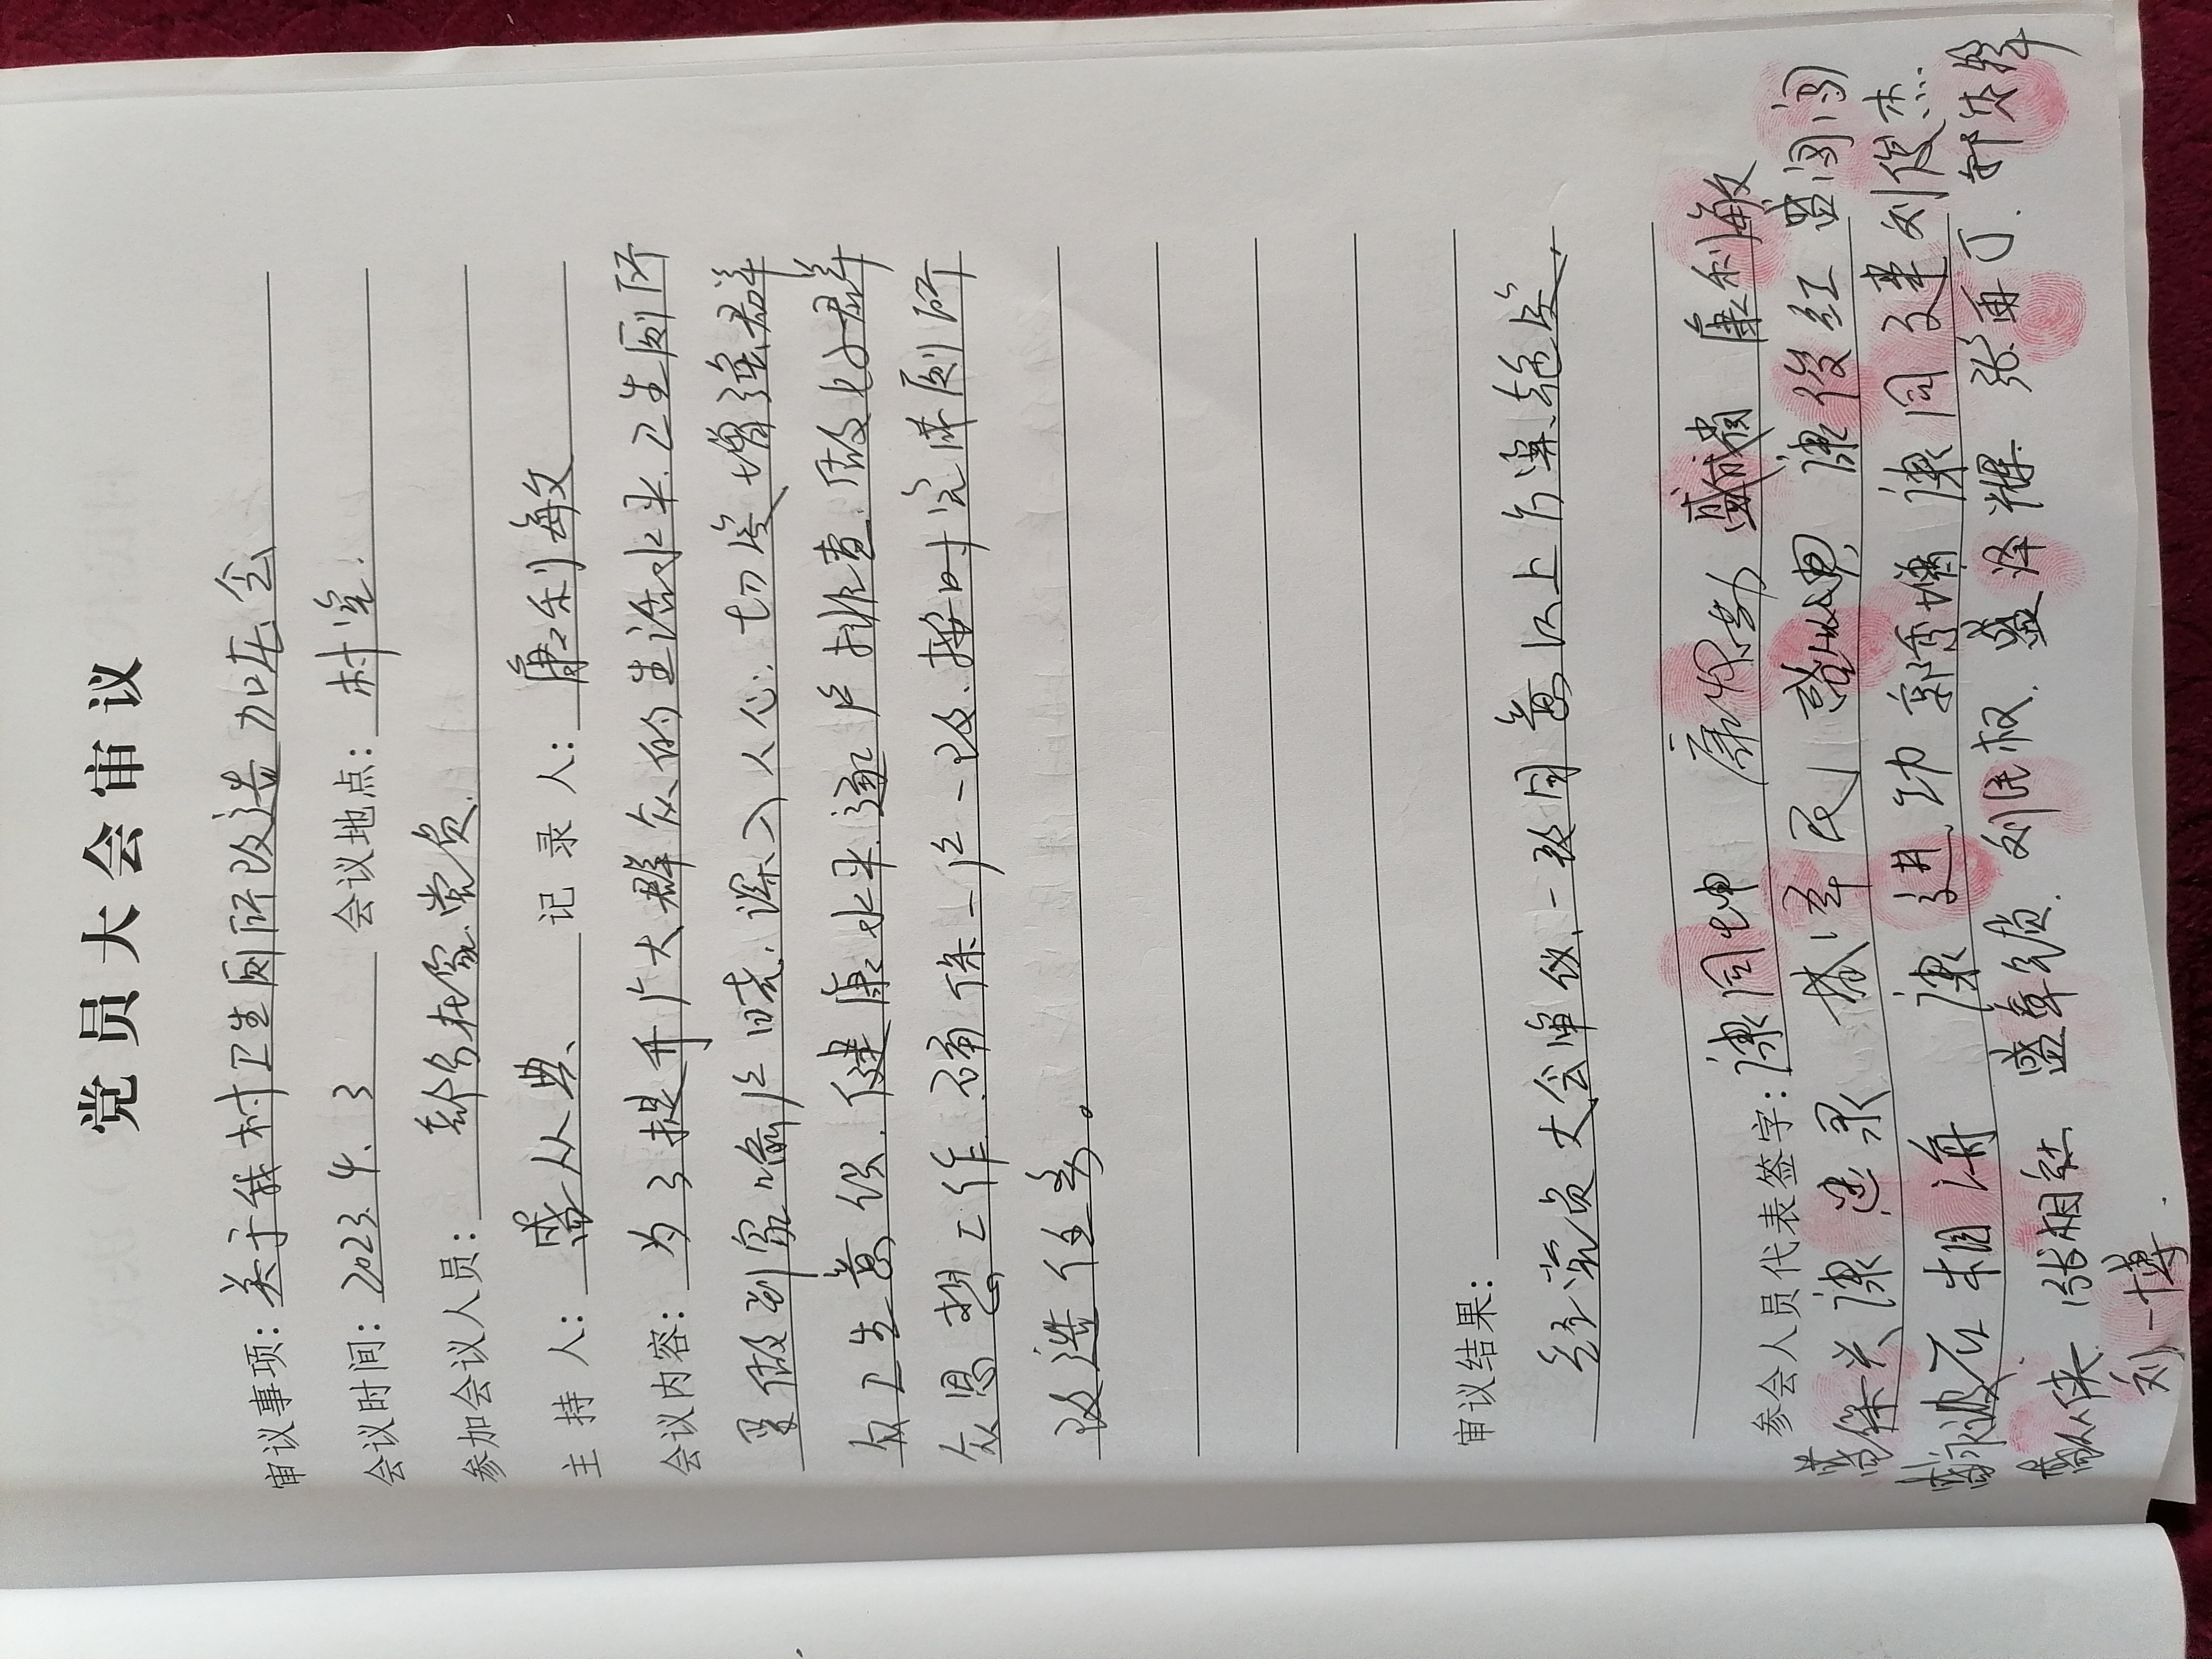 党员大会审议
审议事项：关于我村卫生厕所改造加在会
会议时间：2023.4.3 会议地点：村室.
参加会议人员：部分在家党员.
主持人：盛从典 记录人：康利敏
会议内容：为了提升广大群众的生活水平.卫生厕所
要做到家喻户晓.深入人心.切实增强群
众卫生意识.健康水平.逐户排查.做好群
众思想工作.确保一户一改.按时完成厕所
改造任务。
审议结果：
经党员大会审议,一致同意以上方案施实,
参会人员代表签字：康同坤 康 盛成 康利敏
保兴 康 录 泽民 盛从典 康俊红 盛闯闯
波 石相海 康进功 郭季增 康同建 刘俊杰
侠 张相 盛章锁. 刘民权. 盛泽辉 张雨丁. 郭 锋
刘一博.